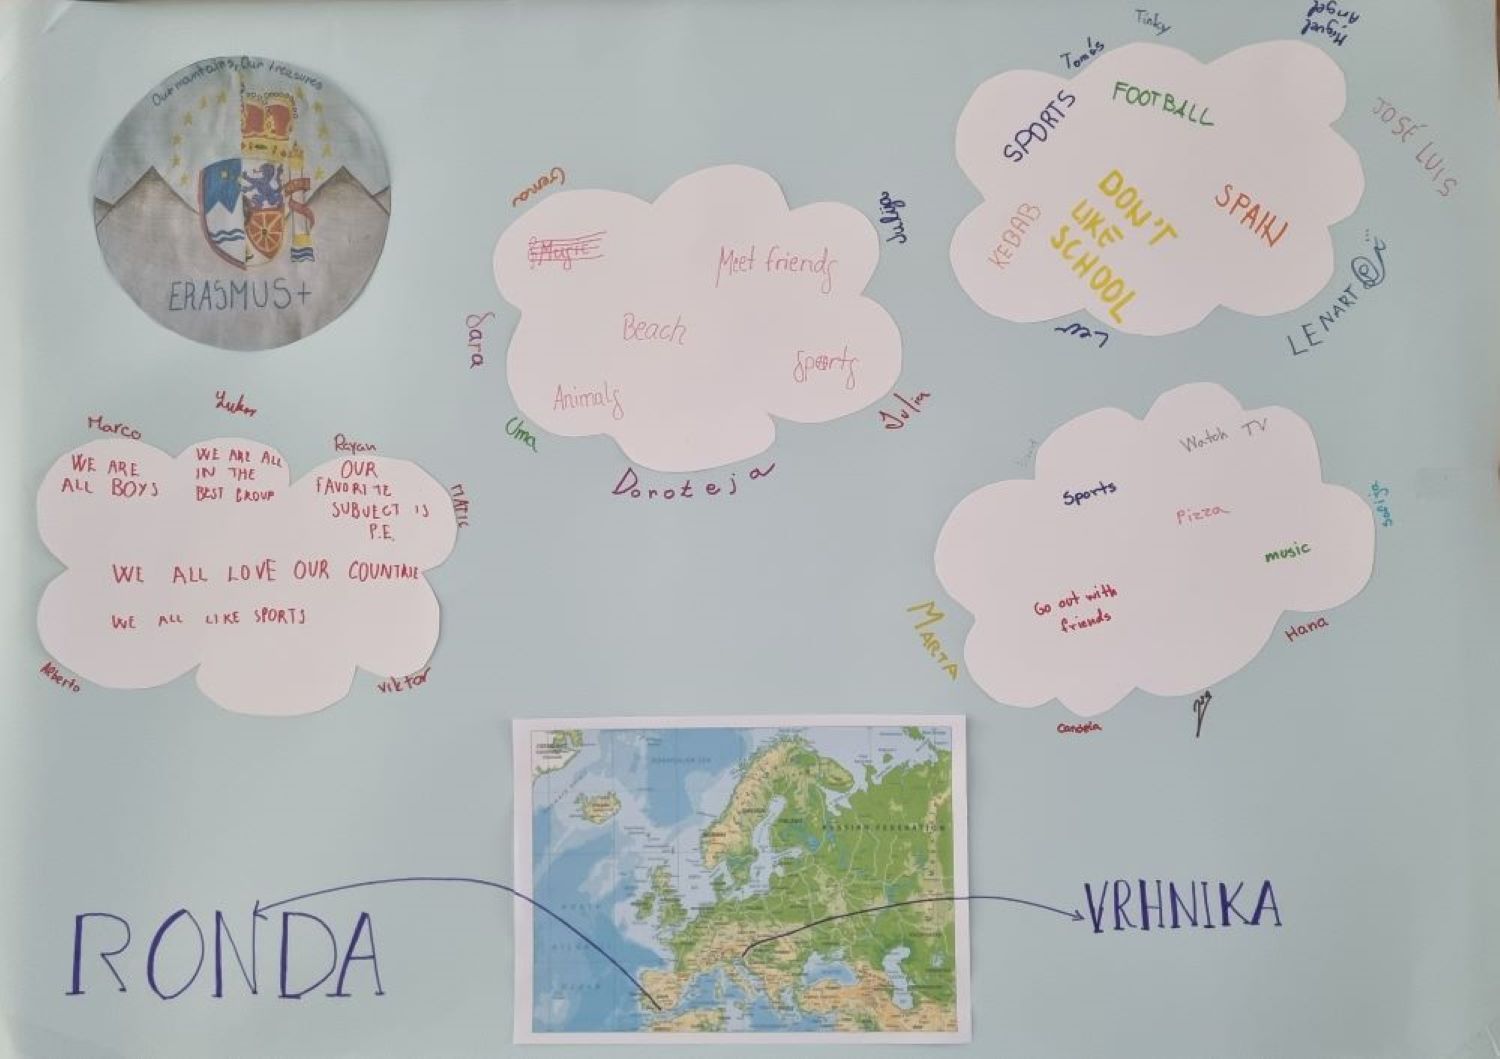 Our mountains, Our treasures
ERASMUS+
Marco
Rayan
MATIC
Alberto
Viktor
WE ARE
ALL BOYS
WE ARE ALL
IN THE
BEST GROUP
OUR
FAVORITE
SUBJECT IS
P.E.
WE ALL LOVE OUR COUNTRIE
WE ALL LIKE SPORTS
Gema
Julija
Sara
Uma
Doroteja
Julia
Music
Meet friends
Beach
Sports
Animals
Tomás
Tinky
Miguel
Angel
JOSÉ LUIS
LENART
SPORTS
FOOTBALL
KEBAB
DON'T
LIKE
SCHOOL
SPAIN
MARTA
Candela
Hana
Watch TV
Sports
Pizza
music
Go out with
friends
RONDA
VRHNIKA
RUSSIAN FEDERATION